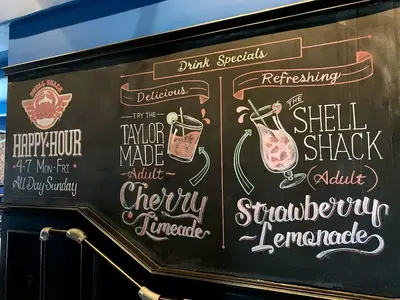 SHELL SHACK
HAPPY HOUR
4-7 Mon-Fri
All Day Sunday
Drink Specials
Delicious
TRY THE
TAYLOR
MADE
-Adult-
Cherry
Limeade
Refreshing
THE
SHELL
SHACK
(Adult)
Strawberry
-Lemonade